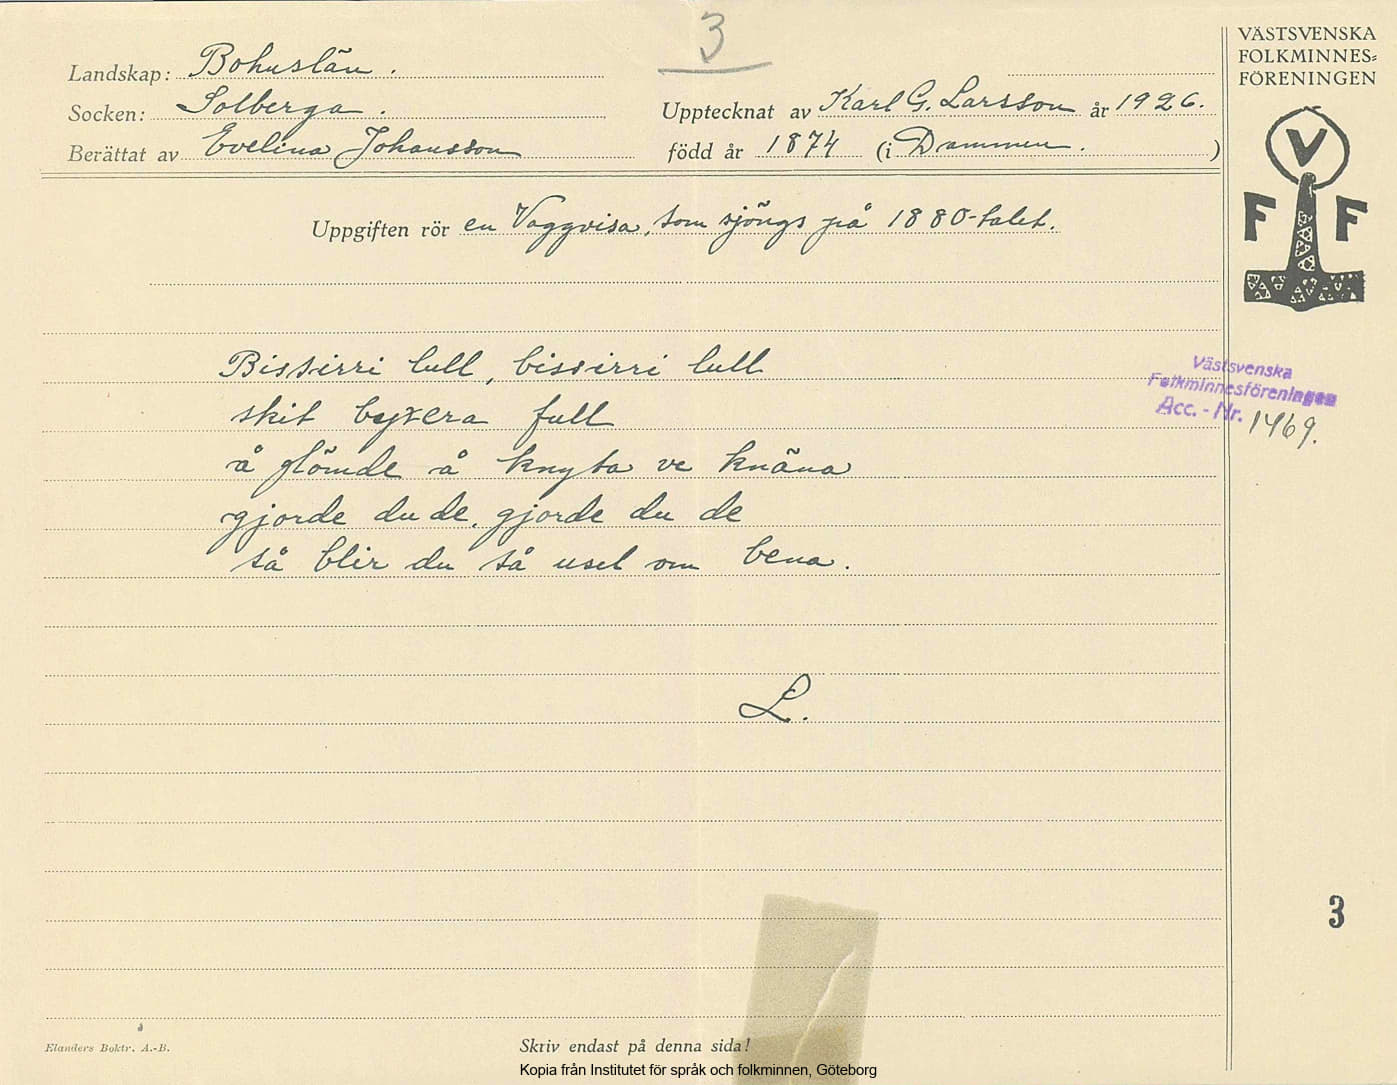 3
VÄSTSVENSKA
FOLKMINNES=
FÖRENINGEN
Landskap: Bohuslän.
Socken: Solberga.
Upptecknat av Karl G. Larsson år 1926.
Berättat av Evelina Johansson
född år 1874 (i Dammen.)
V
F F
Uppgiften rör en Vaggvisa, som sjöngs på 1880-talet.
Bissirri lull, bissirri lull
skit byxera full
å glömde å knyta ve knäna
gjorde du de, gjorde du de
så blir du så usel om bena.
L.
Västsvenska
Folkminnesföreningen
Acc. - Nr. 1469.
3
Elanders Boktr. A.-B.
Skriv endast på denna sida!
Kopia från Institutet för språk och folkminnen, Göteborg